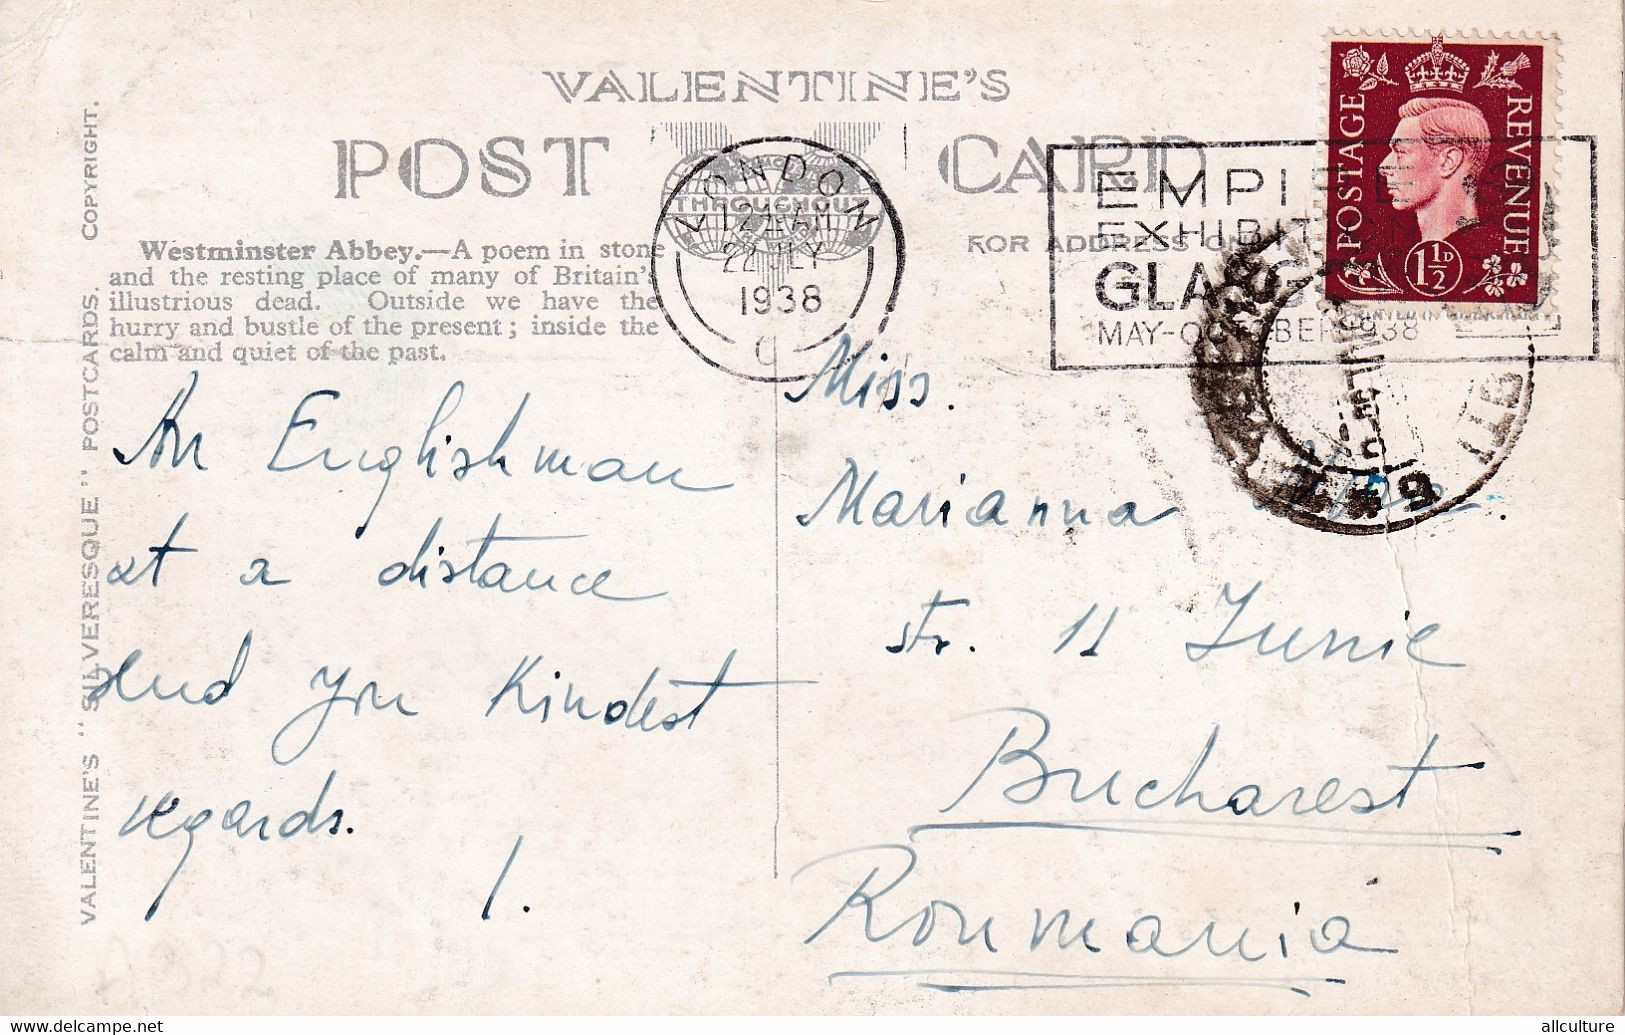 VALENTINE'S
POST CARD
THROUGHOUT
FOR ADDRESS ONLY
LONDON
22 JLY
1938
EMPIRE
EXHIBITION
GLASGOW
MAY-OCTOBER 1938
POSTAGE REVENUE
1½D
Westminster Abbey.—A poem in stone
and the resting place of many of Britain's
illustrious dead. Outside we have the
hurry and bustle of the present; inside the
calm and quiet of the past.
VALENTINE'S "SILVERESQUE" POSTCARDS. COPYRIGHT.
An Englishman
at a distance
send you Kindest
regards.
1.
Miss.
Marianna
Str. 11 Junie
Bucharest
Roumania
delcampe.net
allculture